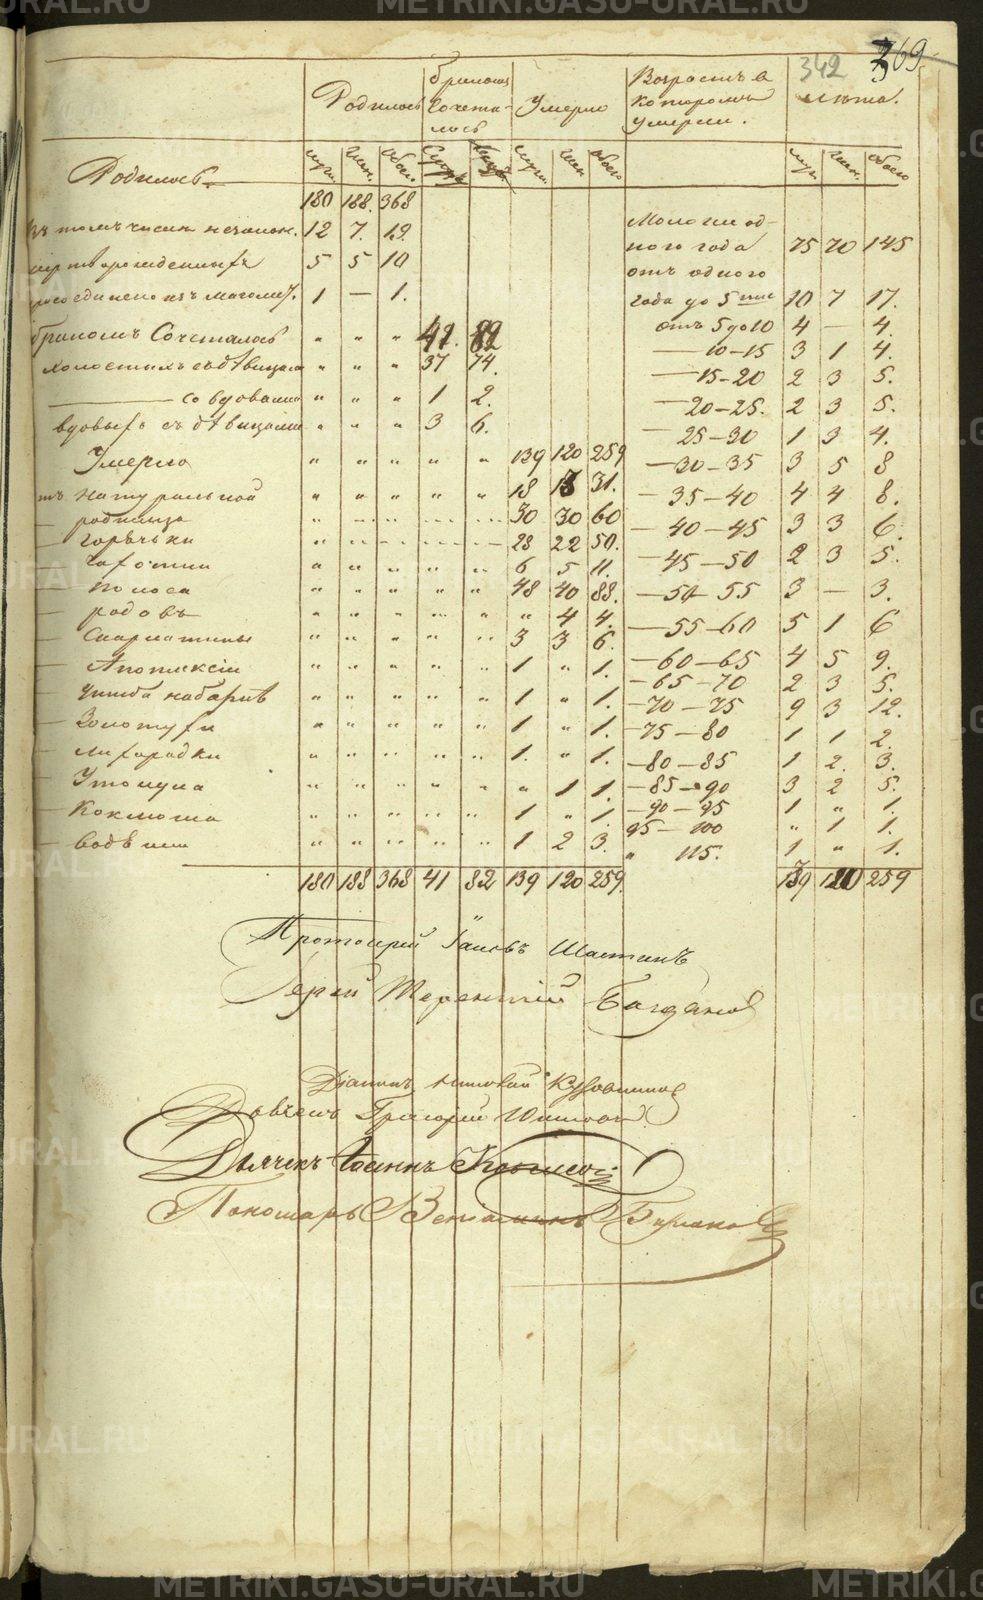 342 369
Родилось Бракомъ Сочеталось Умерло Возрастъ въ которомъ умерли. лѣта.
Родилось муж. жен. обоего муж. жен. обоего муж. жен. обоего
180 188. 368
въ томъ числѣ незакон. 12 7. 19.
мертворожденныхъ 5 5 10
1 — 1.
бракомъ Сочеталось " " " 41. 82
холостыхъ съ дѣвицами " " " 37 74.
— со вдовами " " " 1 2.
вдовыхъ съ дѣвицами " " " 3 6.
Умерло " " " " " 139 120 259
натуральной " " " " " 18 13 31.
— родимца " " " " " 30 30 60
— горячки " " " " " 28 22 50.
— чахотки " " " " " 6 5 11.
— поноса " " " " " 48 40 88.
— родовъ " " " " " " 4 4.
— Скарлатины " " " " " 3 3 6.
— Апоплексіи " " " " " 1 " 1.
— " " " " " 1 " 1.
— Золотухи " " " " " 1 " 1.
— лихорадки " " " " " 1. " 1.
— Утонула " " " " " " 1 1.
— Коклюша " " " " " 1 " 1.
— водѣ " " " " " 1 2 3.
180 188 368 41 82 139 120 259
Моложе одного года 75 70 145
отъ одного года до 5 10 7 17.
отъ 5 до 10 4 — 4.
— 10 — 15 3 1 4.
— 15 — 20 2 3 5.
— 20 — 25. 2 3 5.
25 — 30 1 3 4.
— 30 — 35 3 5 8
— 35 — 40 4 4 8.
— 40 — 45 3 3 6.
— 45 — 50 2 3 5.
— 50 — 55 3 — 3.
— 55 — 60 5 1 6
— 60 — 65 4 5 9.
— 65 — 70 2 3 5.
— 70 — 75 9 3 12.
— 75 — 80 1 1 2.
— 80 — 85 1 2. 3.
— 85 — 90 3 2 5.
— 90 — 95 1 " 1.
95 — 100 " 1 1.
" 115. 1 " 1.
139 120 259
Протоіерей Іаковъ
Іерей Терентій
Діаконъ
Григорій
Дьячекъ Іоаннъ
Пономарь Веніаминъ
METRIKI.GASU-URAL.RU